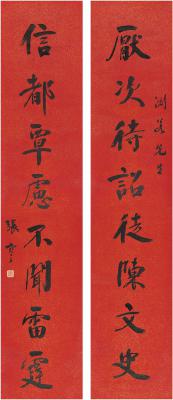 厭次待詔徒陳文史
渊若先生
信都覃慮不聞雷霆
張